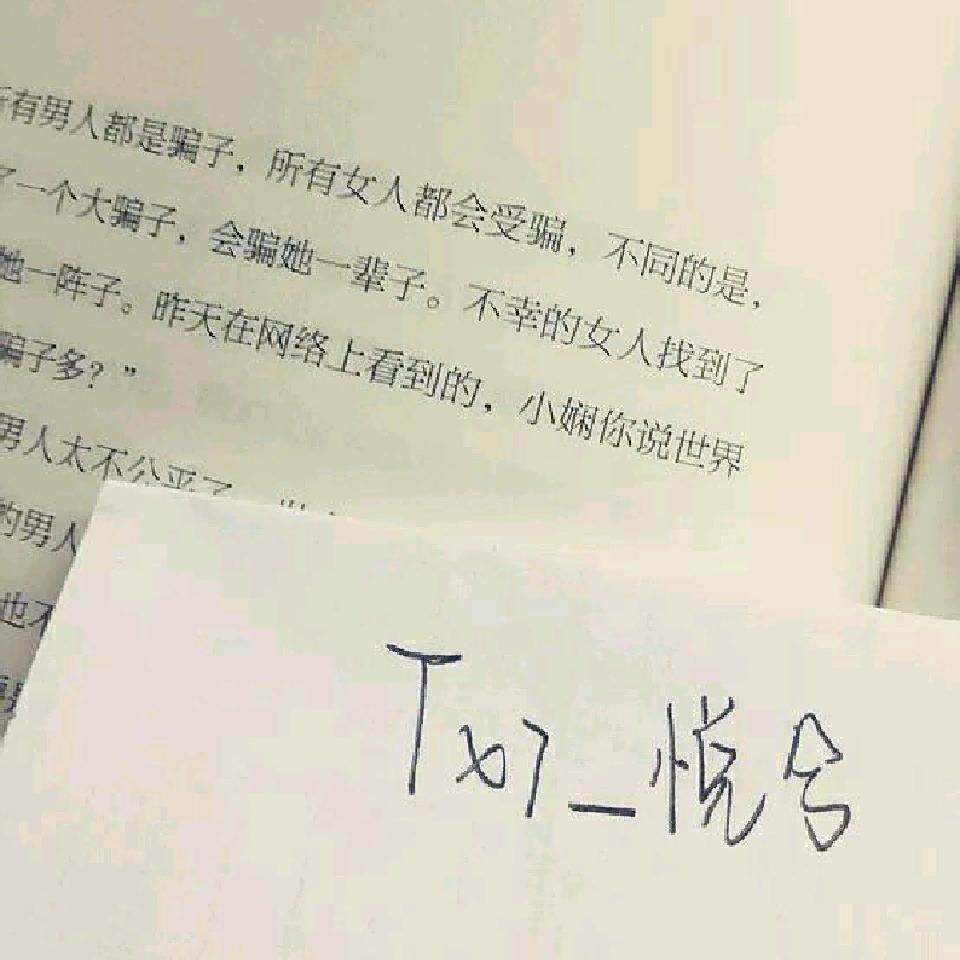 所有男人都是骗子，所有女人都会受骗，不同的是，
了一个大骗子，会骗她一辈子。不幸的女人找到了
她一阵子。昨天在网络上看到的，小娴你说世界
骗子多？”
男人太不公平了
的男人
也不